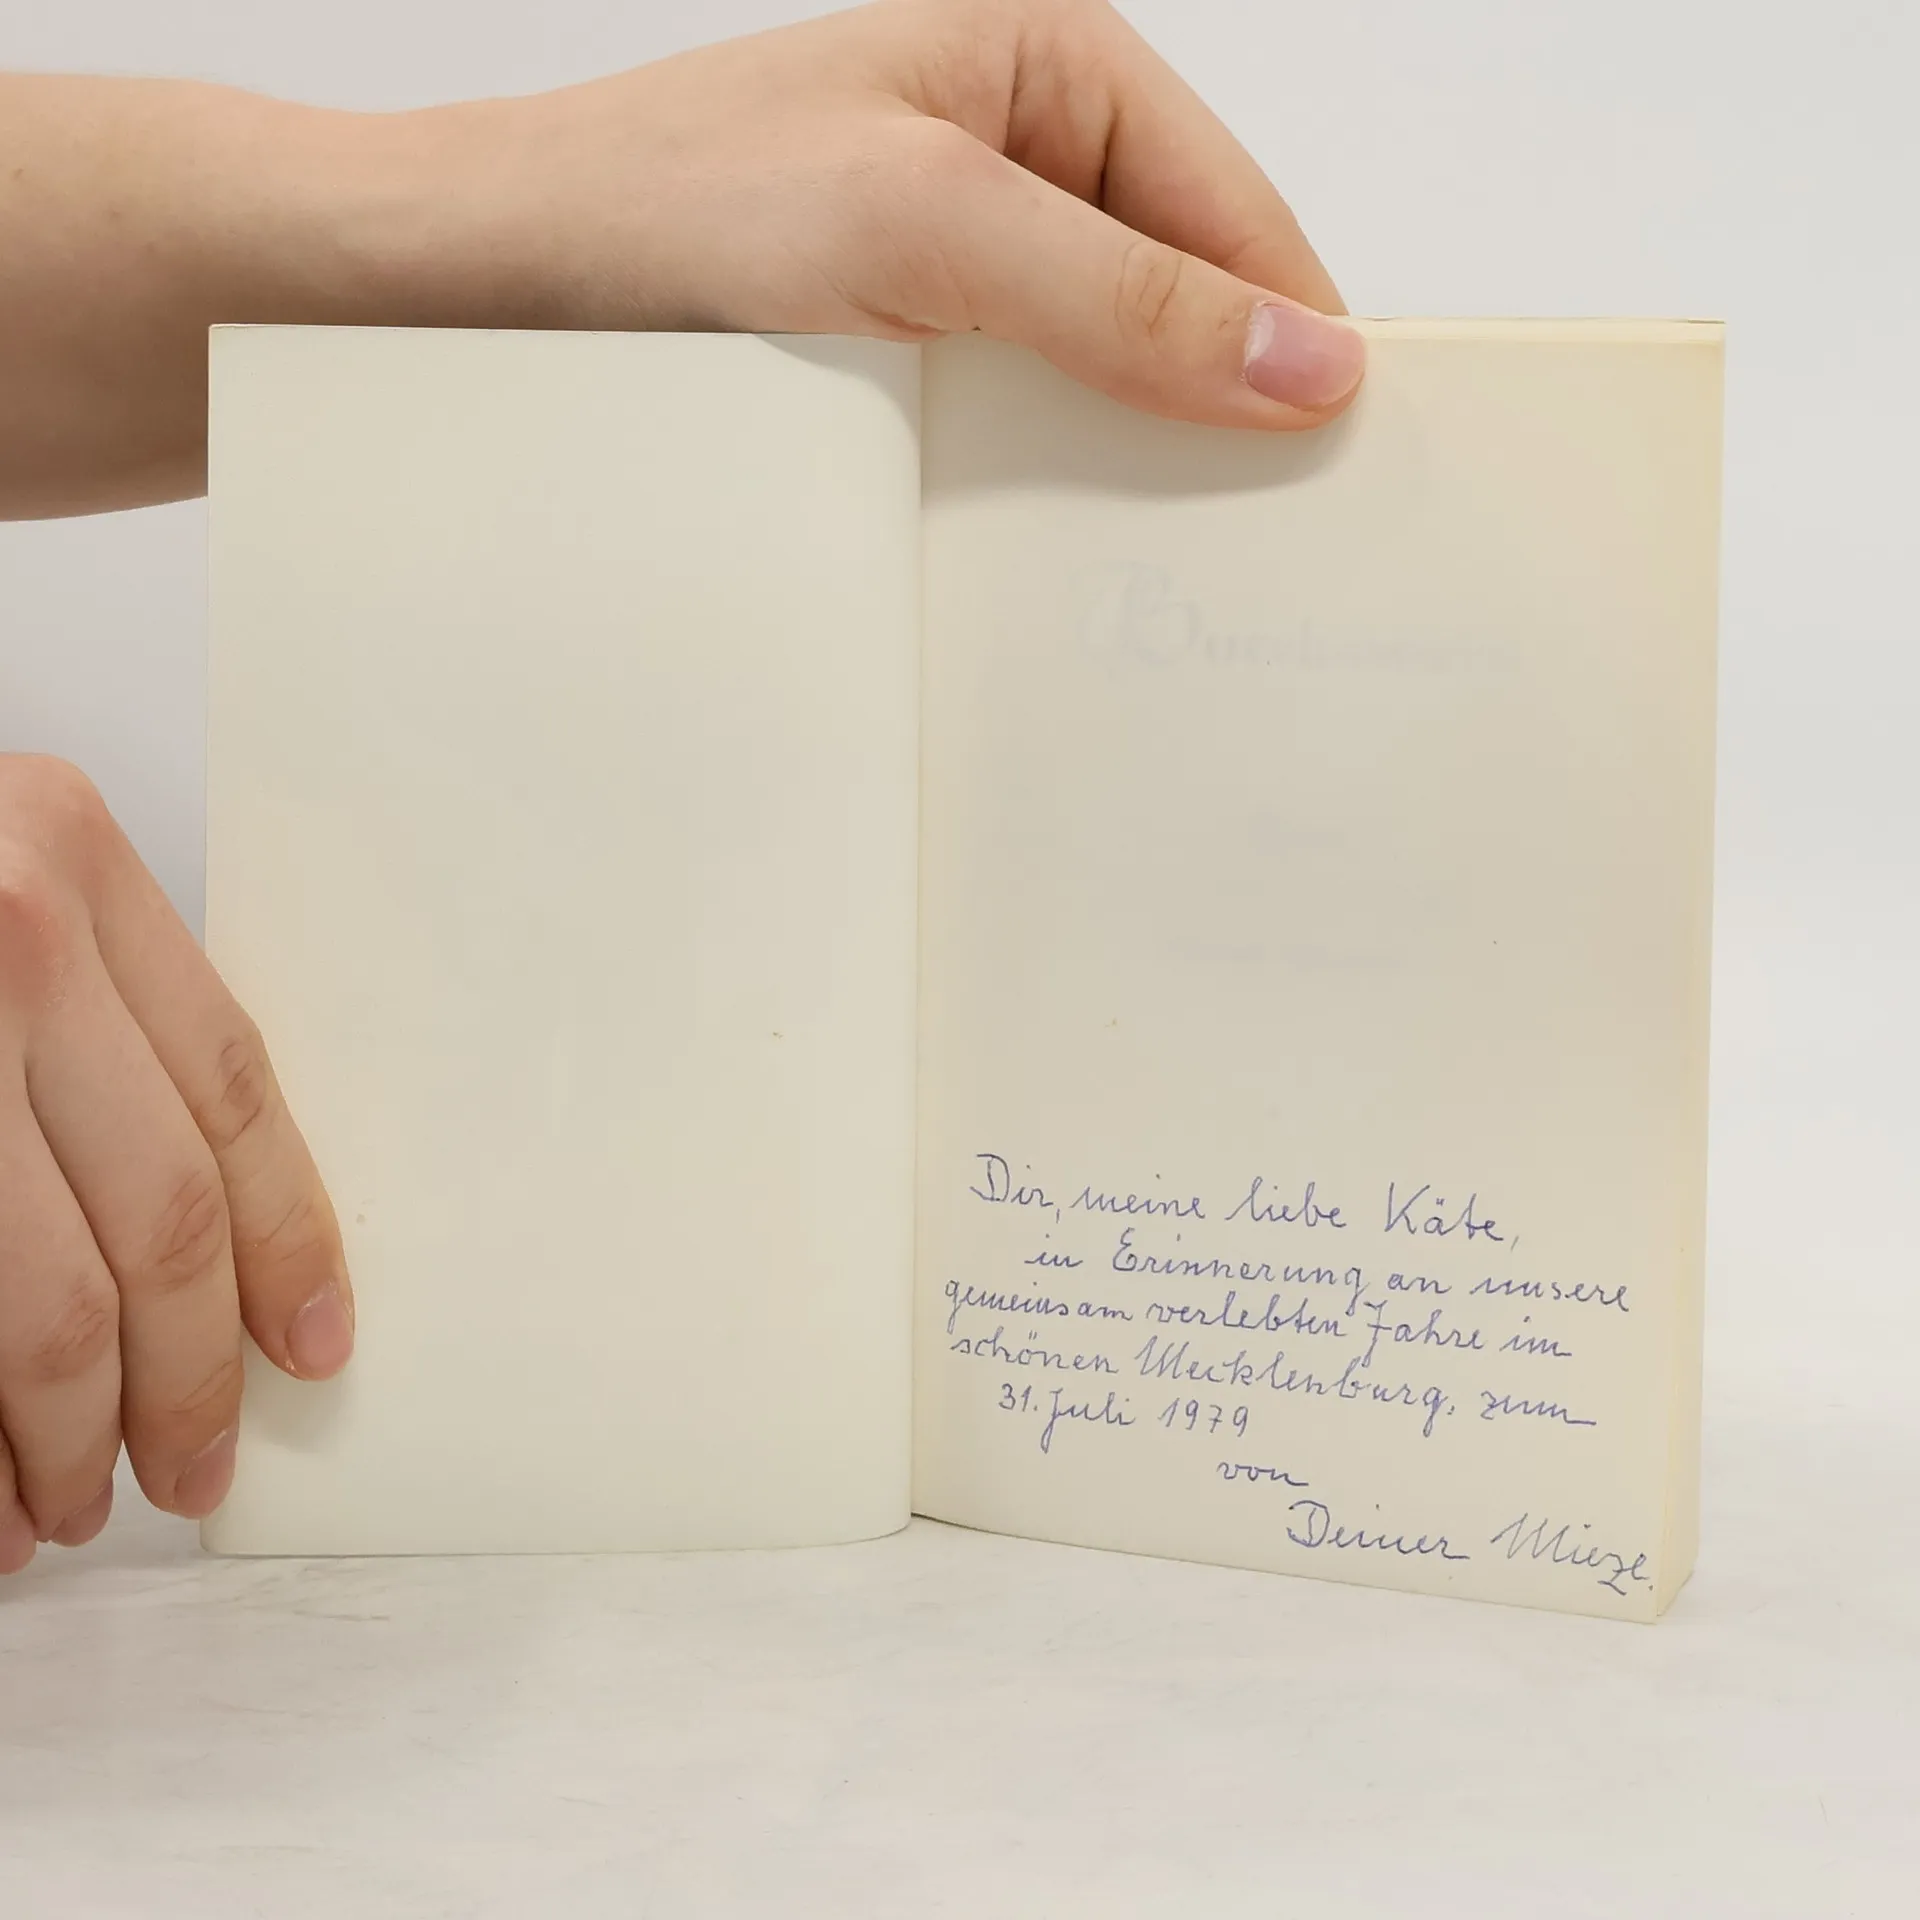 Dir, meine liebe Käte,
in Erinnerung an unsere
gemeinsam verlebten Jahre im
schönen Mecklenburg, zum
31. Juli 1979
von
Deiner Mieze.